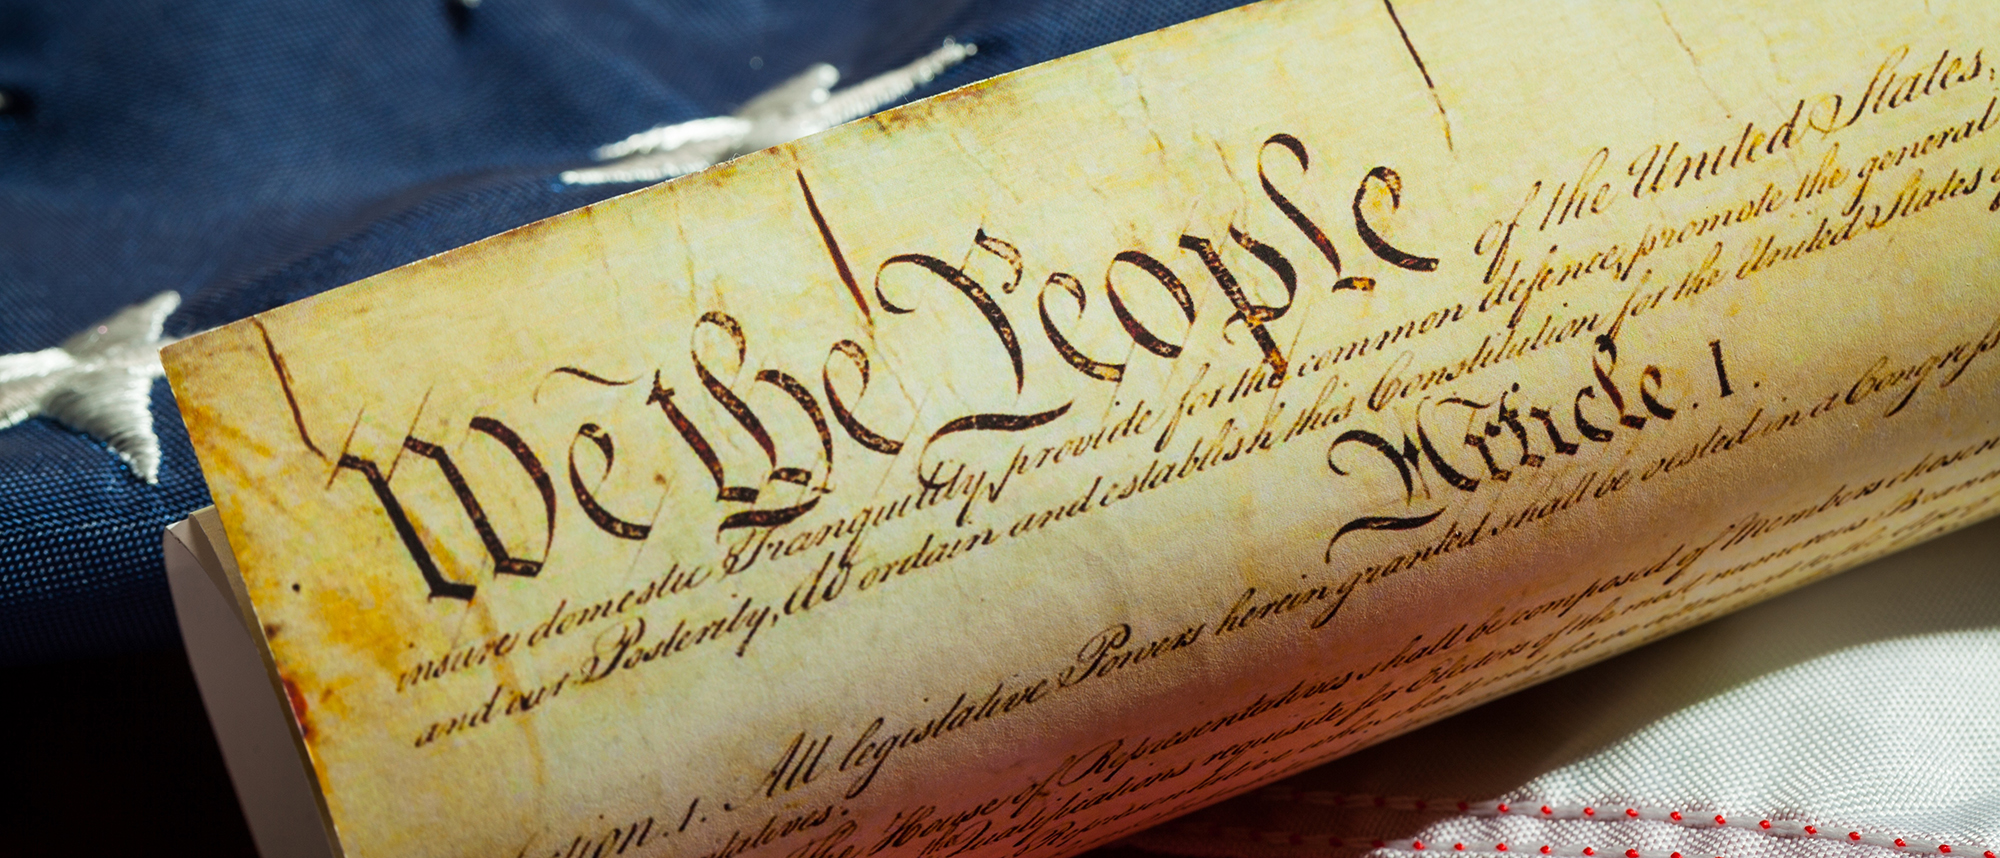 We the People of the United States,
insure domestic Tranquility, provide for the common defence, promote the general
and our Posterity, do ordain and establish this Constitution for the United States of
Article. I.
ction. 1. All legislative Powers herein granted shall be vested in a Congress
tatives.
The House of Representatives shall be composed of Members chosen
the Qualifications requisite for Electors of the most numerous Branch